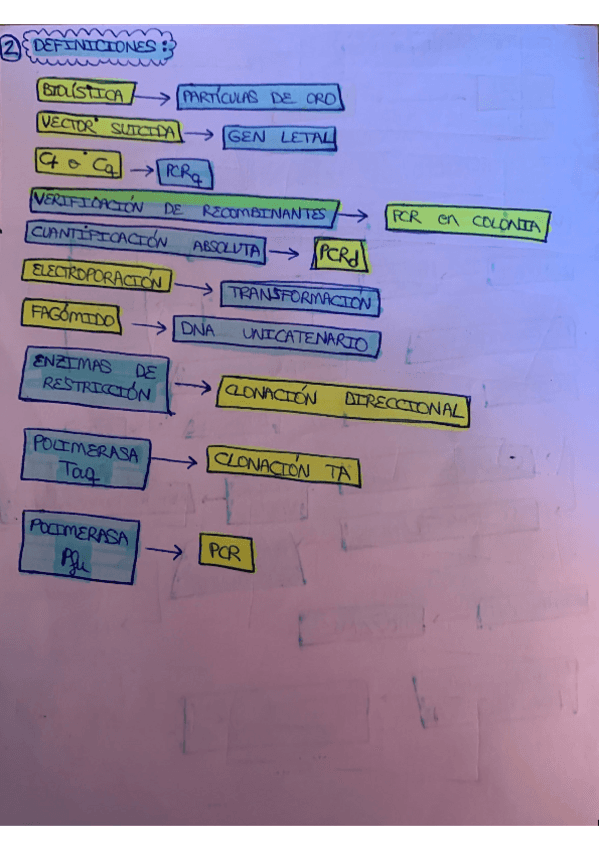 2 DEFINICIONES:
BIOLÍSTICA → PARTÍCULAS DE ORO
VECTOR SUICIDA → GEN LETAL
Ct o Cq → PCRq
VERIFICACIÓN DE RECOMBINANTES → PCR en COLONIA
CUANTIFICACIÓN ABSOLUTA → PCRd
ELECTROPORACIÓN → TRANSFORMACIÓN
FAGÓMIDO → DNA UNICATENARIO
ENZIMAS DE
RESTRICCIÓN → CLONACIÓN DIRECCIONAL
POLIMERASA
Taq → CLONACIÓN TA
POLIMERASA
Pfu → PCR